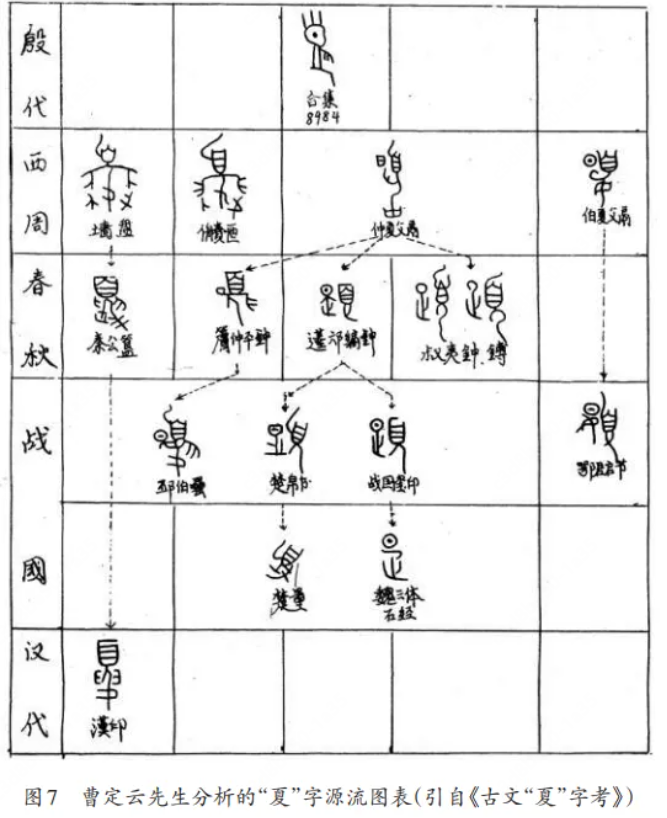 殷代
合集
8984
西周
墙盘
仲夏父鬲
伯夏父鬲
春秋
秦公簋
叔夷钟、鎛
战
邳伯罍
楚帛书
战国玺印
國
楚玺
魏三体
石经
汉代
漢印
图7 曹定云先生分析的“夏”字源流图表(引自《古文“夏”字考》)